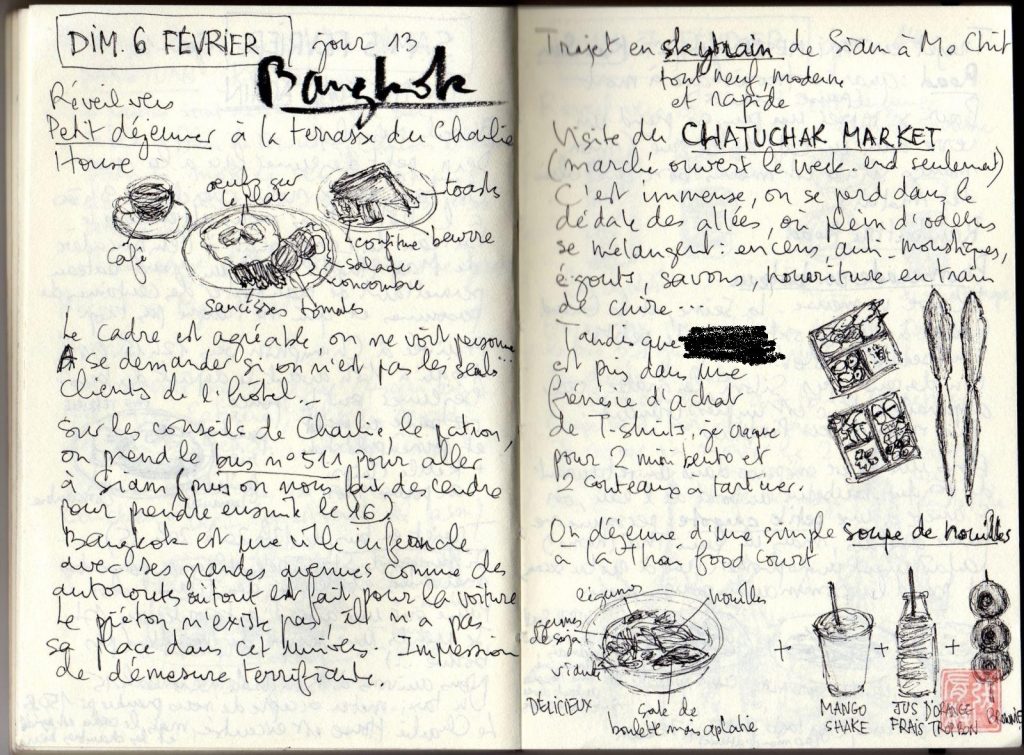 DIM. 6 FÉVRIER jour 13
Bangkok
Réveil vers
Petit déjeuner à la terrasse du Charlie
House
oeufs sur
le plat
toasts
café
confiture beurre
salade
concombre
saucisses tomates
Le cadre est agréable, on ne voit personne
A se demander si on n'est pas les seuls...
clients de l'hôtel...
Sur les conseils de Charlie, le patron,
on prend le bus n° 511 pour aller
à Siam (puis on nous fait descendre
pour prendre ensuite le 16)
Bangkok est une ville infernale
avec des grandes avenues comme des
autoroutes où tout est fait pour la voiture
Le piéton n'existe pas, il n'a pas
sa place dans cet univers. Impression
de démesure terrifiante.
Trajet en skytrain de Siam à Mo Chit
tout neuf, moderne
et rapide
Visite du CHATUCHAK MARKET
(marché ouvert le week-end seulement)
C'est immense, on se perd dans le
dédale des allées, où plein d'odeurs
se mélangent : encens anti-moustiques,
égouts, savons, nourriture en train
de cuire...
Tandis que
est pris dans une
frénésie d'achat
de T-shirts, je craque
pour 2 mini bento et
2 couteaux à tartiner.
On déjeune d'une simple soupe de nouilles
à la Thai food court
légumes nouilles
germes
de soja
viande
DÉLICIEUX
sorte de
boulette mais aplatie
+ + +
MANGO
SHAKE
JUS D'ORANGE
FRAIS TROP BON